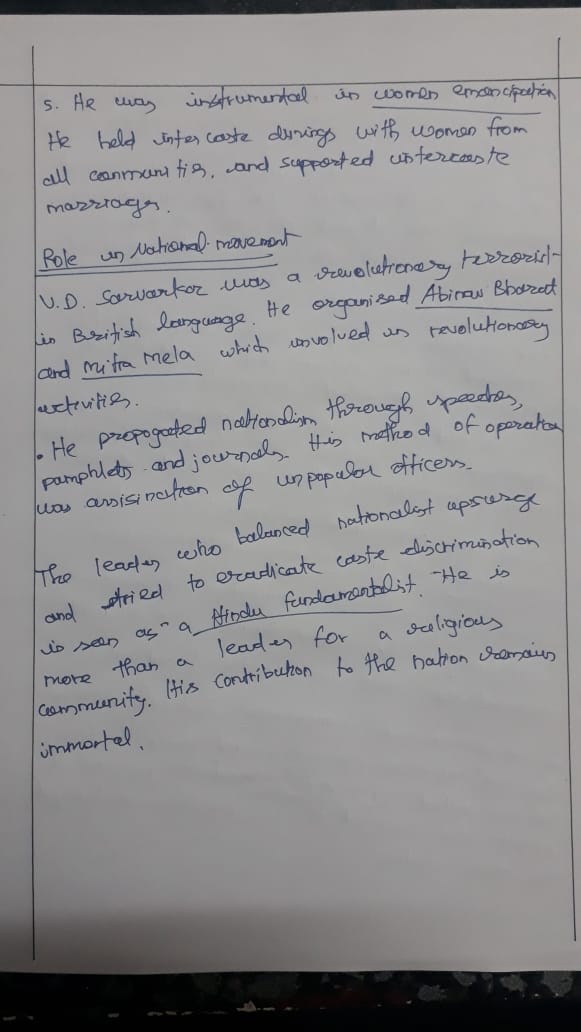 5. He was instrumental in women emancipation
He held inter caste dinings with women from
all communities, and supported intercaste
marriages.
Role in National movement
V.D. Sarvarkar was a revolutionary terrorist
in British language. He organised Abinav Bharat
and mitra mela which involved in revolutionary
activities.
• He propogated nationalism through speeches,
pamphlets and journals. His method of operation
was assisination of unpopular officers.
The leader who balanced nationalist upsurge
and tried to eradicate caste discrimination
is seen as a Hindu fundamentalist. He is
more than a leader for a religious
community. His contribution to the nation remains
immortal.